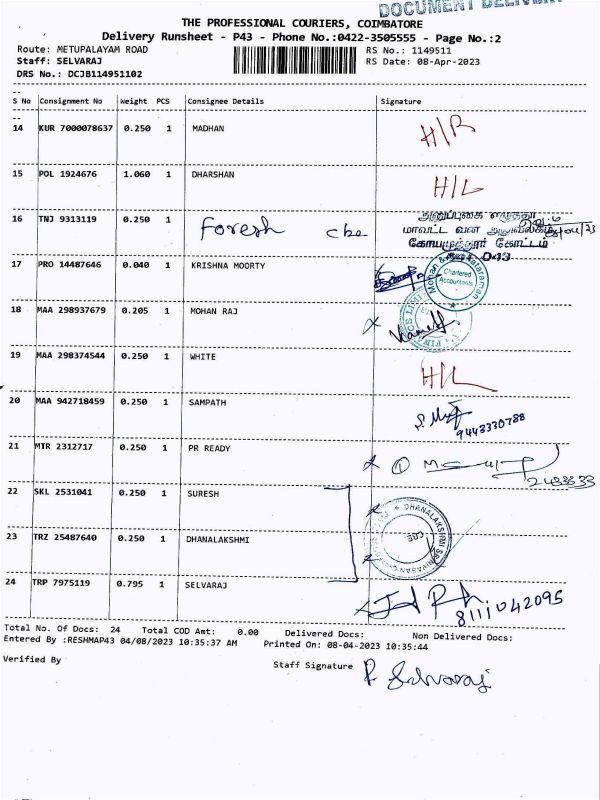 DOCUMENT DELIVERY
THE PROFESSIONAL COURIERS, COIMBATORE
Delivery Runsheet - P43 - Phone No.:0422-3505555 - Page No.:2
Route: METUPALAYAM ROAD
RS No.: 1149511
Staff: SELVARAJ
RS Date: 08-Apr-2023
DRS No.: DCJB114951102
S No Consignment No Weight PCS Consignee Details Signature
14 KUR 7000078637 0.250 1 MADHAN H/R
15 POL 1924676 1.060 1 DHARSHAN H/L
16 TNJ 9313119 0.250 1 Foresh cbe
மாவட்ட வன
கோயமுத்தூர் கோட்டம்
17 PRO 14487646 0.040 1 KRISHNA MOORTY
Chartered
Accountants
18 MAA 298937679 0.205 1 MOHAN RAJ
19 MAA 298374544 0.250 1 WHITE H/L
20 MAA 942718459 0.250 1 SAMPATH
9443330788
21 MTR 2312717 0.250 1 PR READY
22 SKL 2531041 0.250 1 SURESH
DHANALAKSHMI SRINIVASAN
CBE
23 TRZ 25487640 0.250 1 DHANALAKSHMI
24 TRP 7975119 0.795 1 SELVARAJ
8111042095
Total No. Of Docs: 24 Total COD Amt: 0.00 Delivered Docs: Non Delivered Docs:
Entered By :RESHMAP43 04/08/2023 10:35:37 AM Printed On: 08-04-2023 10:35:44
Verified By
Staff Signature P Selvaraj